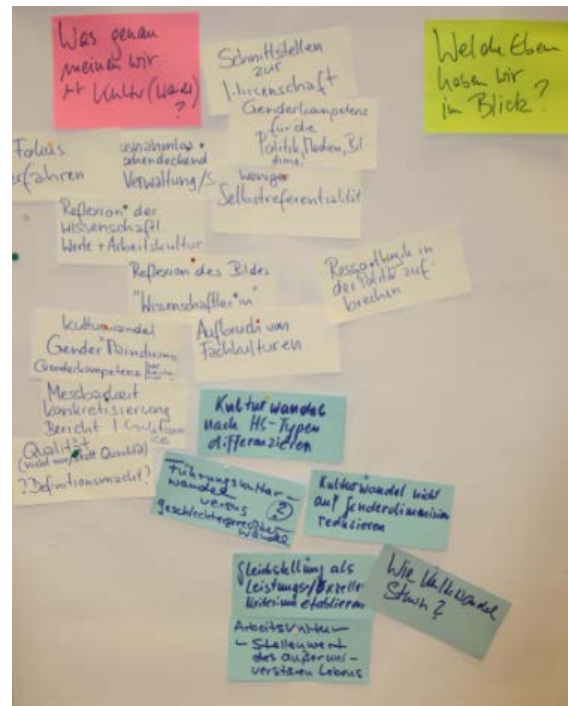 Was genau
meinen wir
Kultur(wandel)
?
Schnittstellen
zur
Genderkompetenz
für die
Politik, Medien, Bil
dung,
Welche Eben
haben wir
im Blick?
Fokus
erfahren
Verwaltung/S
weniger
Selbstreferentialität
Reflexion der
wissenschaftl
Werte + Arbeitskultur
Reflexion des Bildes
"Wissenschaftler*in"
Ressortlogik in
der Politik auf-
brechen
Kulturwandel
Gender Mainstreaming
Genderkompetenz
Aufbruch von
Fachkulturen
Messbarkeit
Konkretisierung
Bericht
Qualität
(nicht nur/statt Quantität)
? Definitionsmacht?
Kulturwandel
nach HS-Typen
differenzieren
Führungskultur-
wandel
versus
geschlechtergerechter
wandel
?
Kulturwandel nicht
auf Genderdimension
reduzieren
Gleichstellung als
Leistungs-/Exzellenz
kriterium etablieren
Wie Kulturwandel
Arbeitskultur
- Stellenwert
des außeruni-
versitären Lebens